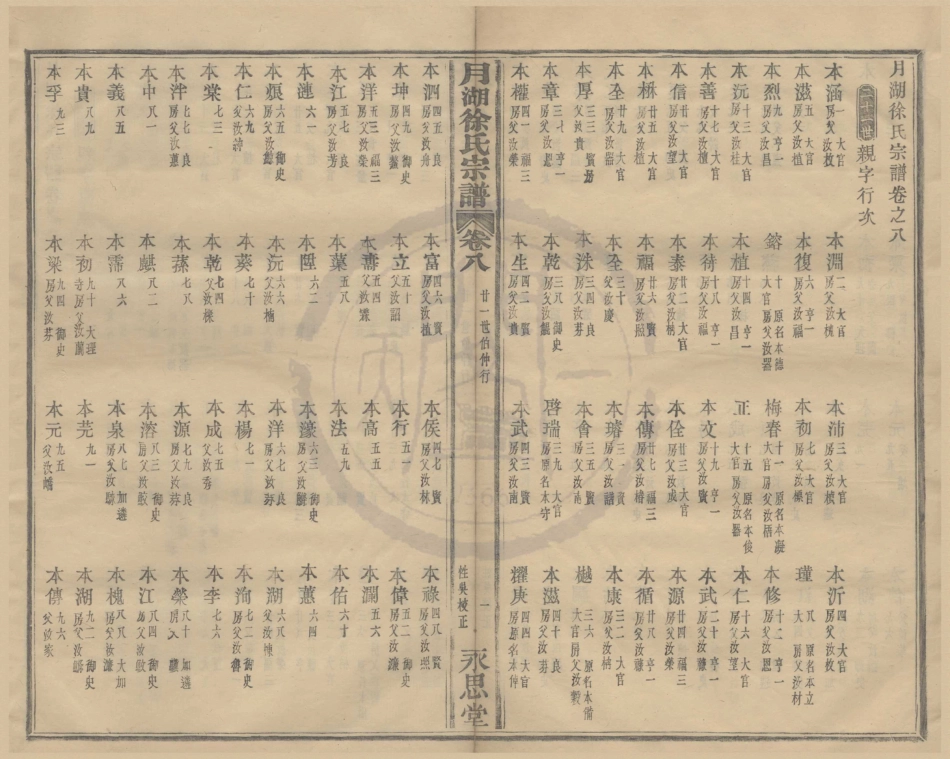 月湖徐氏宗譜卷之八
親字行次
本涵 一 大官房父汝枚
本淵 二 大官房父汝楨
本沛 三 大官房父汝楨
本沂 四 大官房父汝枚
本滋 五 大官房父汝植
本復 六 亨一房父汝福
本初 七 大官
瑾 八 原名本立大官房父汝材
本烈 九 亨一房父汝昌
鎔 十 原名本德大官房父汝器
梅春 十一 原名本凝大官房父汝梧
本修 十二 亨一房父汝思
本沅 十三 大官房父汝桂
本植 十四 亨一房父汝昌
正 十五 原名本俊大官房父汝器
本仁 十六 大官房父汝望
本善 十七 大官房父汝檀
本待 十八 亨一房父汝福
本文 十九 亨一房父汝賓
本武 二十 亨一房父汝謙
本信 廿一 大官房父汝望
本泰 廿二 大官房父汝楠
本佺 廿三 大官房父汝成
本源 廿四 福三房父汝榮
本栟 廿五 大官房父汝植
本福 廿六 賓房父汝熙
本傳 廿七 福三房父汝椿
本循 廿八 亨一房父汝謙
本全 廿九 大官房父汝器
本全 三十 父汝慶
本璿 三一 賓房父汝議
本康 三二 大官房父汝楠
本厚 三三 賓房父汝貴
本洙 三四 良房父汝芬
本會 三五 賓房父汝南
樾 三六 原名本備大官房父汝穀
本章 三七 亨一房父汝思
本乾 三八 御史房父汝龍
啓瑞 三九 大官房原名本守
本滋 四十 良房父汝芬
本權 四一 福三房父汝榮
本生 四二 賓房父汝貴
本武 四三 賓房父汝南
耀庚 四四 大官房原名本仲
月湖徐氏宗譜 卷八 廿一世伯仲行 一 性奐校正 永思堂
本泗 四五 良房父汝舟
本富 四六 賓房父汝植
本侯 四七 賓房父汝林
本祿 四八 賢房父汝照
本坤 四九 御史房父汝瀟
本立 五十 父汝韶
本行 五一 賓房父汝勝
本偉 五二 御史房父汝濂
本洋 五三 福三房父汝榮
本壽 五四 父汝霖
本高 五五
本瀾 五六
本江 五七 良房父汝芳
本葉 五八
本法 五九
本佑 六十
本漣 六一
本陞 六二
本濠 六三 御史房父汝
本蕙 六四
本嫄 六五 御史房父汝
本沅 六六 父汝楠
本洋 六七 良房父汝芬
本湖 六八 父汝棟
本仁 六九 父汝
本葵 七十
本楊 七一
本洵 七二 御史房父汝
本棠 七三
本乾 七四 父汝樑
本成 七五 父汝香
本李 七六
本泮 七七 良房父汝蕙
本蓀 七八
本源 七九 良房父汝芬
本榮 八十 加遴房父
本中 八一
本麒 八二
本溶 八三 御史房父汝
本江 八四 御史房父汝
本義 八五
本霈 八六
本泉 八七 加遴房父汝勛
本槐 八八 大加房父汝
本貴 八九
本初 九十 大理寺房父汝蘭
本芫 九一
本湖 九二 御史房父汝
本孚 九三
本梁 九四 御史房父汝芬
本元 九五 父汝
本傳 九六 父汝